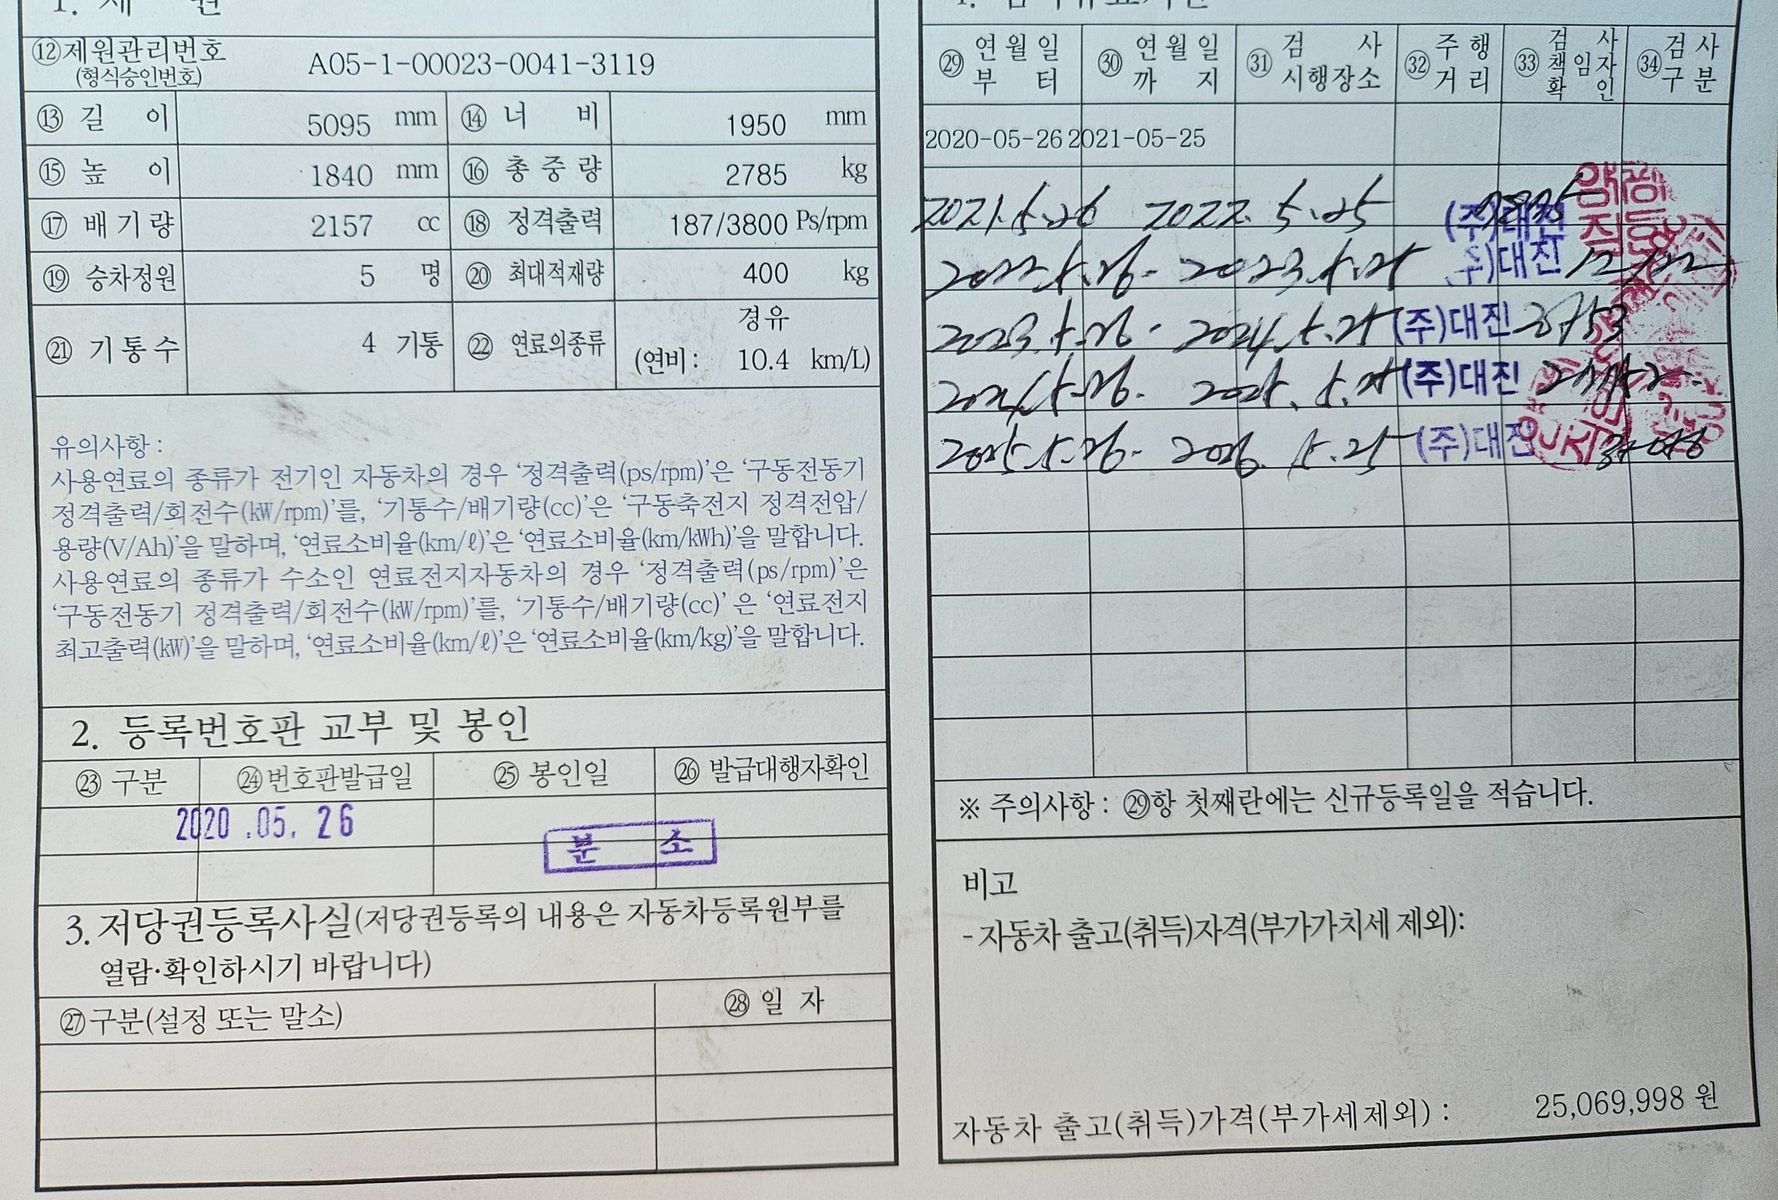 1. 제 원
⑫제원관리번호
(형식승인번호)
A05-1-00023-0041-3119
⑬ 길 이 5095 mm ⑭ 너 비 1950 mm
⑮ 높 이 1840 mm ⑯ 총 중 량 2785 kg
⑰ 배 기 량 2157 cc ⑱ 정격출력 187/3800 Ps/rpm
⑲ 승차정원 5 명 ⑳ 최대적재량 400 kg
㉑ 기 통 수 4 기통 ㉒ 연료의종류 경유
(연비 : 10.4 km/L)
유의사항 :
사용연료의 종류가 전기인 자동차의 경우 ‘정격출력(ps/rpm)’은 ‘구동전동기
정격출력/회전수(kW/rpm)’를, ‘기통수/배기량(cc)’은 ‘구동축전지 정격전압/
용량(V/Ah)’을 말하며, ‘연료소비율(km/ℓ)’은 ‘연료소비율(km/kWh)’을 말합니다.
사용연료의 종류가 수소인 연료전지자동차의 경우 ‘정격출력(ps/rpm)’은
‘구동전동기 정격출력/회전수(kW/rpm)’를, ‘기통수/배기량(cc)’ 은 ‘연료전지
최고출력(kW)’을 말하며, ‘연료소비율(km/ℓ)’은 ‘연료소비율(km/kg)’을 말합니다.
2. 등록번호판 교부 및 봉인
㉓ 구분 ㉔번호판발급일 ㉕ 봉인일 ㉖ 발급대행자확인
2020 .05. 26
분 소
3. 저당권등록사실(저당권등록의 내용은 자동차등록원부를
열람·확인하시기 바랍니다)
㉗구분(설정 또는 말소) ㉘ 일 자
㉙ 연 월 일 부 터 ㉚ 연 월 일 까 지 ㉛ 검 사 시행장소 ㉜ 주 행 거 리 ㉝ 검 사 책 임 자 확 인 ㉞ 검 사 구 분
2020-05-26 2021-05-25
2021.5.26 2022. 5.25 (주)대진
2022.5.26- 2023.5.25 (주)대진
2023.5.26- 2024.5.25 (주)대진
2024.5.26- 2025.5.25 (주)대진
2025.5.26- 2026.5.25 (주)대진
※ 주의사항 : ㉙항 첫째란에는 신규등록일을 적습니다.
비고
- 자동차 출고(취득)자격(부가가치세 제외):
자동차 출고(취득)가격(부가세제외) : 25,069,998 원